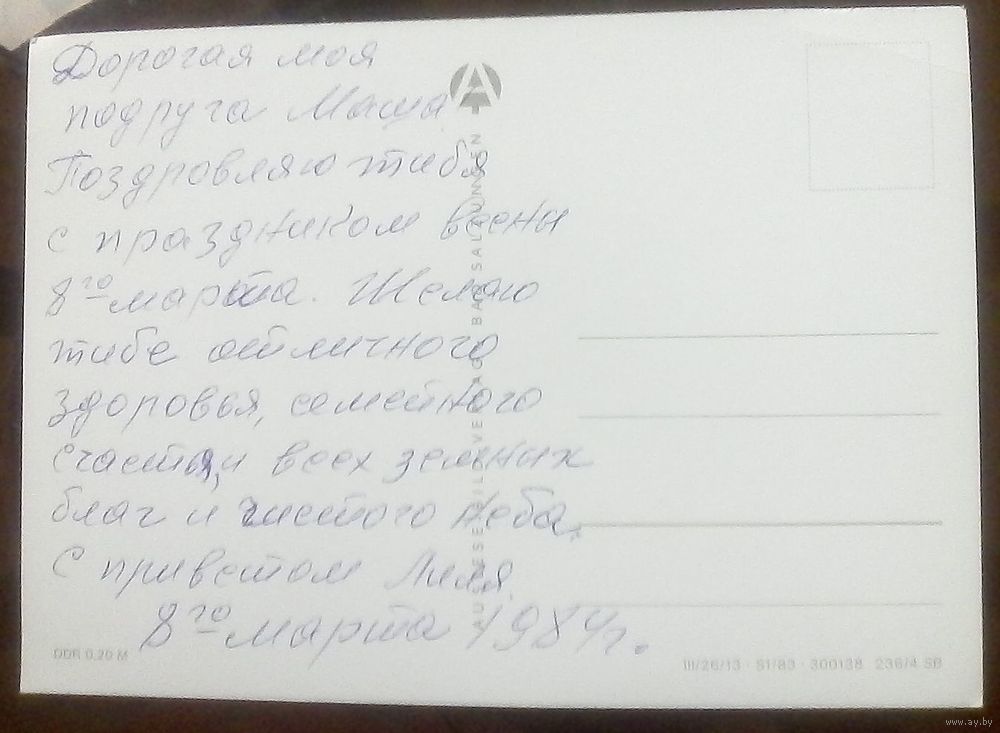 Дорогая моя
подруга Маша
Поздровляю тибя
с праздником весны
8го марта. Желаю
тибе отличного
здоровья, семейного
счастья, и всех земных
благ и чистого неба.
С приветом Лиля.
8го марта 1984г.
BAD SALZUNGEN
DDR 0,20 M
III/26/13 · S1/83 · 300138 236/4 SB
www.ay.by